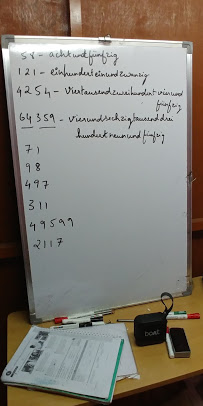 58 - achtundfünfzig
121 - einhunderteinundzwanzig
4254 - Viertausendzweihundert vierund
fünfzig
64359 - Vierundsechzigtausenddrei
hundertneunundfünfzig
71
98
497
311
49599
2117
boAt